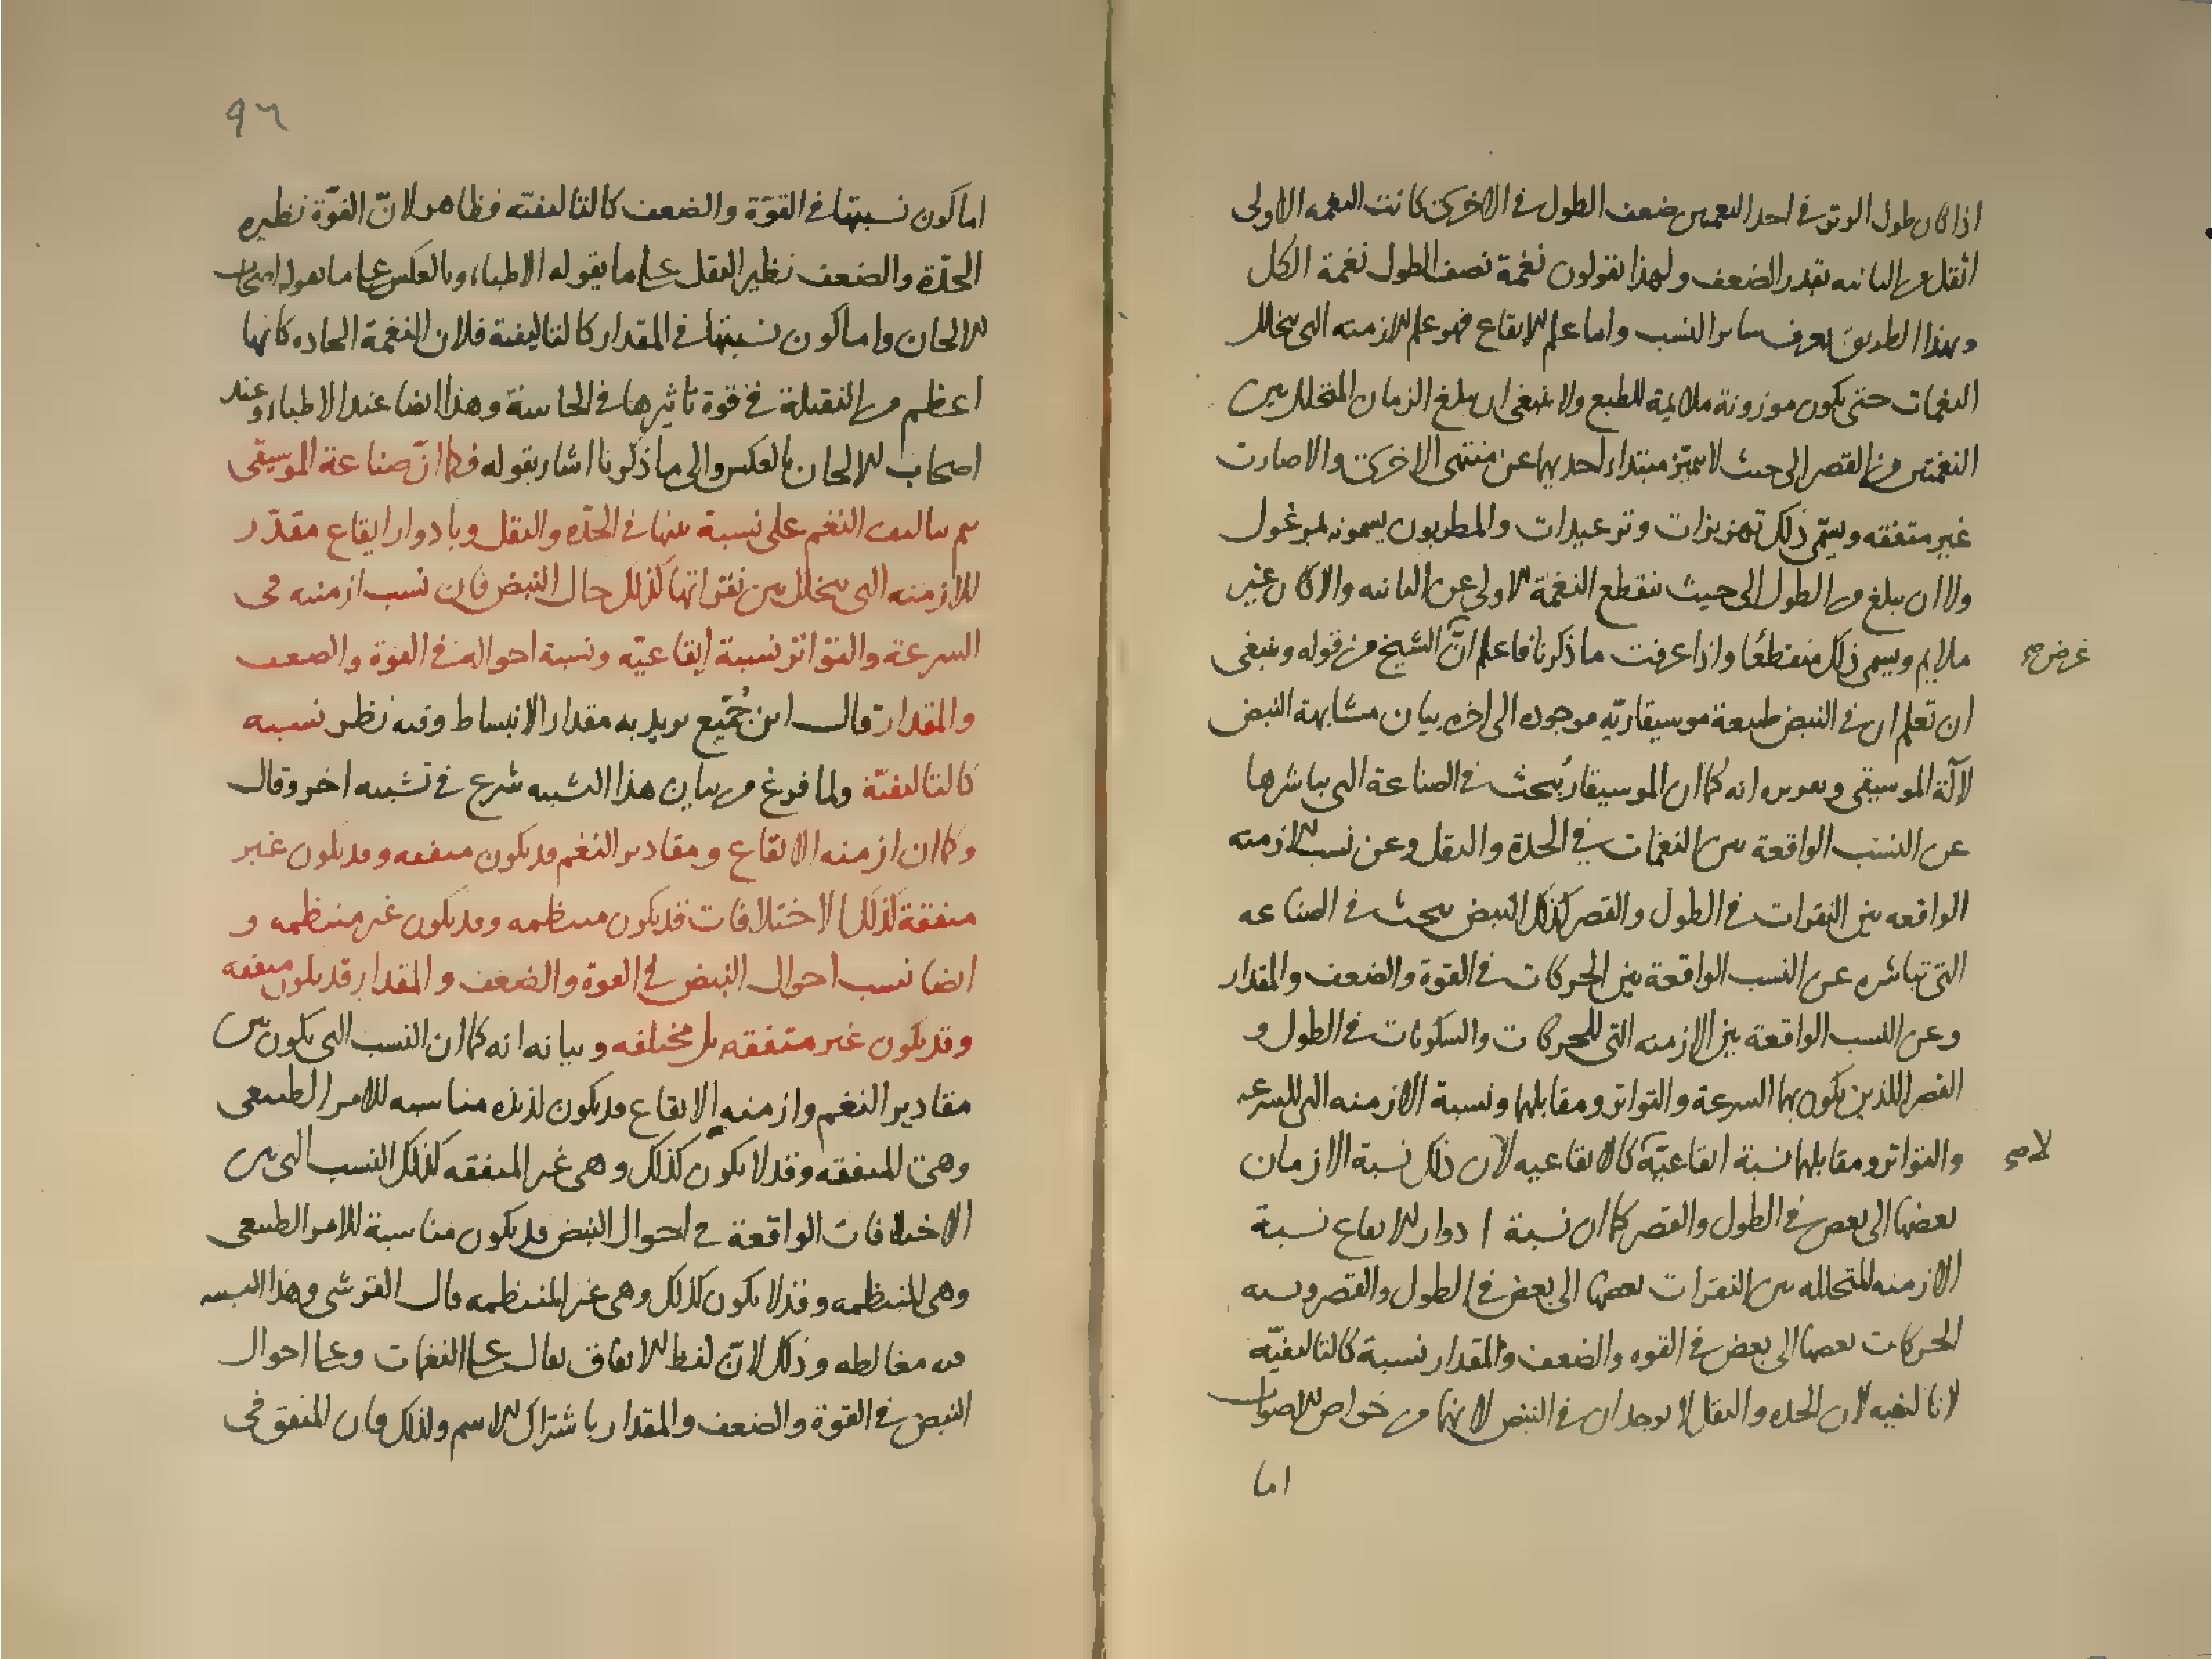 اذا كان طول الوتر فى احد النغمتين ضعف الطول فى الاخرى كانت النغمه الاولى
اثقل من الثانيه بقدر الضعف ولهذا يقولون نغمة نصف الطول نغمة الكل
وبهذا الطريق يعرف ساير النسب واما علم الايقاع فهو علم الازمنه التى يتخلل
النغمات حتى يكون موزونة ملايمة للطبع ولا ينبغى ان يبلغ الزمان المتخلل بين
النغمتين من القصر الى حيث لا يتميّز مبتداء احديهما عن منتهى الاخرى والا صارت
غير متفقه ويسمّى ذلك تهزيزات وترعيدات والمطربون يسمونه
ولا ان يبلغ من الطول الى حيث ينقطع النغمة الاولى عن الثانيه والا كان غير
ملايم ويسمى ذلك منقطعًا واذا عرفت ما ذكرنا فاعلم انّ الشيخ من قوله وينبغى
غرض صح
ان تعلم ان فى النبض طبيعة موسيقاريّه موجوده الى اخره بيان مشابهة النبض
لآلة الموسيقى وتقريره انه كما ان الموسيقار يبحث فى الصناعة التى يباشرها
عن النسب الواقعة بين النغمات فى الحدة والثقل وعن نسب الازمنه
الواقعه بين النقرات فى الطول والقصر كذلك النبض يبحث فى الصناعه
التى تباشره عن النسب الواقعة بين الحركات فى القوة والضعف والمقدار
وعن النسب الواقعة بين الازمنه التى للحركات والسكونات فى الطول و
القصر اللذين يكون بهما السرعة والتواتر ومقابلهما ونسبة الازمنه التى للسرعه
والتواتر ومقابلهما نسبة ايقاعيّة كالايقاعيه لان ذلك نسبة الازمان
لا صح
بعضها الى بعض فى الطول والقصر كما ان نسبة ادوار الايقاع نسبة
الازمنه المتخلله بين النقرات بعضها الى بعض فى الطول والقصر ونسبه
الحركات بعضها الى بعض فى القوه والضعف والمقدار نسبة كالتاليفيّه
لا تاليفيه لان الحده والثقل لا يوجدان فى النبض لانهما من خواص الاصوات
اما
٩٦
اما كون نسبتها فى القوّة والضعف كالتاليفيّه فظاهر لانّ القوّة نظيره
الحدّة والضعف نظير الثقل على ما يقوله الاطباء وبالعكس على ما يقوله اصحاب
الالحان واما كون نسبتها فى المقدار كالتاليفية فلان النغمة الحاده كانها
اعظم من الثقيلة فى قوة تاثيرها فى الحاسة وهذا ايضا عند الاطباء وعند
اصحاب الالحان بالعكس والى ما ذكرنا اشار بقوله فكما انّ صناعة الموسيقى
يتم بتاليف النغم على نسبة بينها فى الحدّه والثقل وبادوار ايقاع مقدّر
للازمنه التى يتخلل بين نقراتها كذلك حال النبض فان نسب ازمنته فى
السرعة والتواتر نسبة ايقاعيّه ونسبة احواله فى القوة والضعف
والمقدار قال ابن جُمَيع يريد به مقدار الانبساط وفيه نظر نسبه
كالتاليفيّة ولما فرغ من بيان هذا التشبيه شرع فى تشبيه اخر وقال
وكما ان ازمنه الايقاع ومقادير النغم قد يكون متفقه وقد يكون غير
متفقة كذلك الاختلافات قد يكون منتظمه وقد يكون غير منتظمه و
ايضا نسب احوال النبض فى القوة والضعف والمقدار قد يكون متفقه
وقد يكون غير متفقه بل مختلفه وبيانه انه كما ان النسب التى يكون بين
مقادير النغم وازمنه الايقاع قد يكون لذيذه مناسبه للامر الطبيعى
وهى المتفقه وقد لا يكون كذلك وهى غير المتفقه كذلك النسب التى بين
الاختلافات الواقعة فى احوال النبض قد يكون مناسبة للامر الطبيعى
وهى المنتظمه وقد لا يكون كذلك وهى غير المنتظمه قال القرشى وهذا التشبيه
فيه مغالطه وذلك لانّ لفظ الاتفاق يقال على النغمات وعلى احوال
النبض فى القوة والضعف والمقدار باشتراك الاسم ولذلك فان المتفق فى